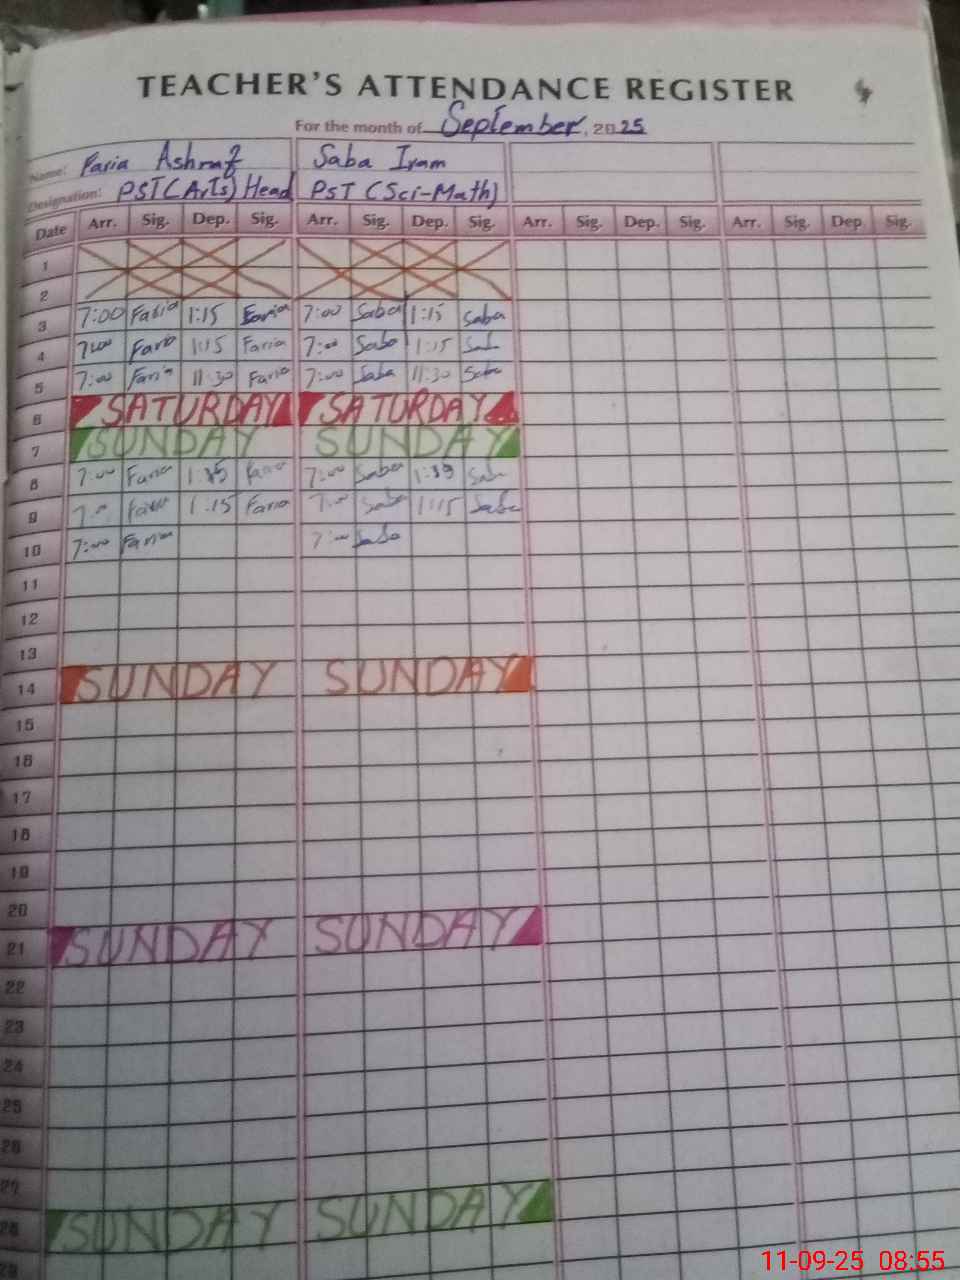 TEACHER'S ATTENDANCE REGISTER
For the month of September, 2025
Name: Faria Ashraf Saba Iram
Designation: PST (Arts) Head PST (Sci-Math)
Date Arr. Sig. Dep. Sig. Arr. Sig. Dep. Sig. Arr. Sig. Dep. Sig. Arr. Sig. Dep Sig.
1
2
3 7:00 Faria 1:15 Faria 7:00 Saba 1:15 Saba
4 7:00 Faria 1:15 Faria 7:00 Saba 1:15 Saba
5 7:00 Faria 11:30 Faria 7:00 Saba 11:30 Saba
6 SATURDAY SATURDAY
7 SUNDAY SUNDAY
8 7:00 Faria Faria 7:00 Saba Saba
9 Faria 1:15 Faria Saba 1:15 Saba
10 7:00 Faria 7:00 Saba
11
12
13
14 SUNDAY SUNDAY
15
16
17
18
19
20
21 SUNDAY SUNDAY
22
23
24
25
26
27
28 SUNDAY SUNDAY
29
11-09-25 08:55